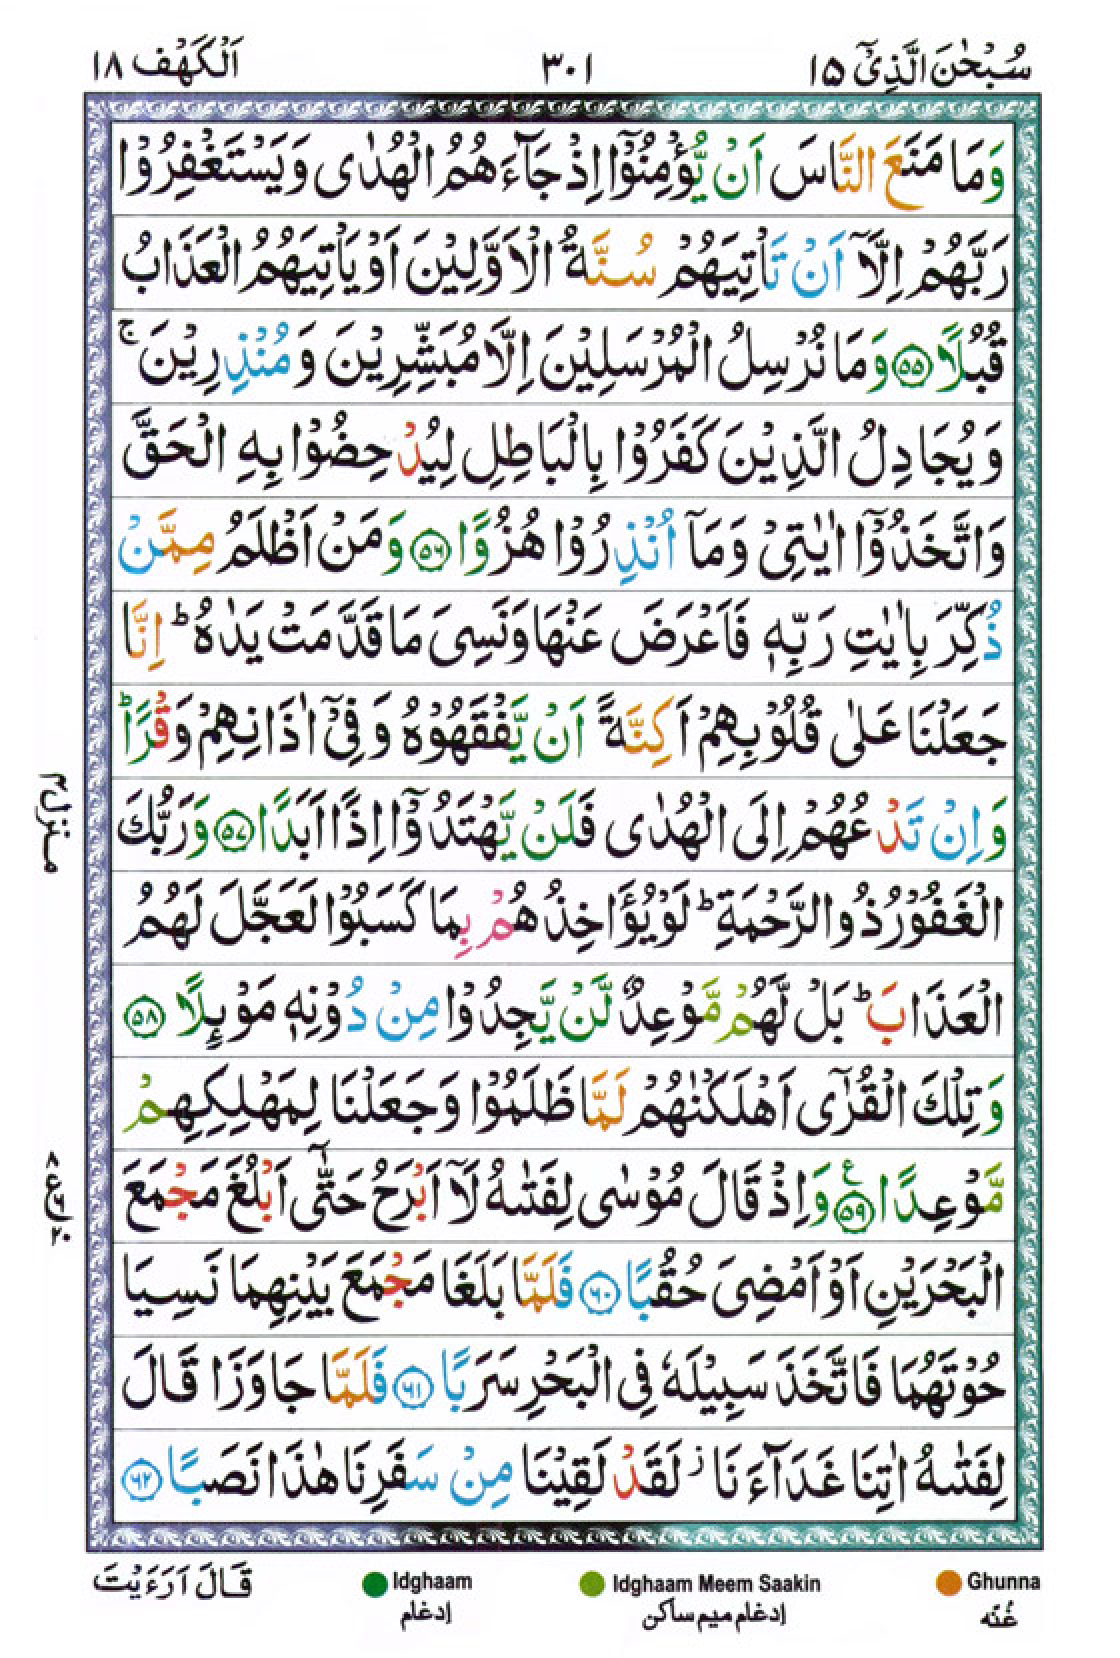 سُبْحٰنَ الَّذِیْۤ ١٥
٣٠١
اَلْكَهْف ١٨
وَمَا مَنَعَ النَّاسَ اَنْ يُّؤْمِنُوْۤا اِذْ جَآءَهُمُ الْهُدٰى وَيَسْتَغْفِرُوْا
رَبَّهُمْ اِلَّاۤ اَنْ تَاْتِيَهُمْ سُنَّةُ الْاَوَّلِيْنَ اَوْ يَاْتِيَهُمُ الْعَذَابُ
قُبُلًا ۝٥٥ وَمَا نُرْسِلُ الْمُرْسَلِيْنَ اِلَّا مُبَشِّرِيْنَ وَمُنْذِرِيْنَ ۚ
وَيُجَادِلُ الَّذِيْنَ كَفَرُوْا بِالْبَاطِلِ لِيُدْحِضُوْا بِهِ الْحَقَّ
وَاتَّخَذُوْۤا اٰيٰتِىْ وَمَاۤ اُنْذِرُوْا هُزُوًا ۝٥٦ وَمَنْ اَظْلَمُ مِمَّنْ
ذُكِّرَ بِاٰيٰتِ رَبِّهٖ فَاَعْرَضَ عَنْهَا وَنَسِىَ مَا قَدَّمَتْ يَدٰهُ ؕ اِنَّا
جَعَلْنَا عَلٰى قُلُوْبِهِمْ اَكِنَّةً اَنْ يَّفْقَهُوْهُ وَفِىْۤ اٰذَانِهِمْ وَقْرًا ؕ
وَاِنْ تَدْعُهُمْ اِلَى الْهُدٰى فَلَنْ يَّهْتَدُوْۤا اِذًا اَبَدًا ۝٥٧ وَرَبُّكَ
الْغَفُوْرُ ذُو الرَّحْمَةِ ؕ لَوْ يُؤَاخِذُهُمْ بِمَا كَسَبُوْا لَعَجَّلَ لَهُمُ
الْعَذَابَ ؕ بَلْ لَّهُمْ مَّوْعِدٌ لَّنْ يَّجِدُوْا مِنْ دُوْنِهٖ مَوْئِلًا ۝٥٨
وَتِلْكَ الْقُرٰٓى اَهْلَكْنٰهُمْ لَمَّا ظَلَمُوْا وَجَعَلْنَا لِمَهْلِكِهِمْ
مَّوْعِدًا ۝٥٩ ع وَاِذْ قَالَ مُوْسٰى لِفَتٰىهُ لَاۤ اَبْرَحُ حَتّٰٓى اَبْلُغَ مَجْمَعَ
الْبَحْرَيْنِ اَوْ اَمْضِىَ حُقُبًا ۝٦٠ فَلَمَّا بَلَغَا مَجْمَعَ بَيْنِهِمَا نَسِيَا
حُوْتَهُمَا فَاتَّخَذَ سَبِيْلَهٗ فِى الْبَحْرِ سَرَبًا ۝٦١ فَلَمَّا جَاوَزَا قَالَ
لِفَتٰىهُ اٰتِنَا غَدَآءَنَا ؗ لَقَدْ لَقِيْنَا مِنْ سَفَرِنَا هٰذَا نَصَبًا ۝٦٢
منزل٤
Ghunna
غُنّه
Idghaam Meem Saakin
إدغام ميم ساكن
Idghaam
إدغام
قَالَ اَرَءَيْتَ